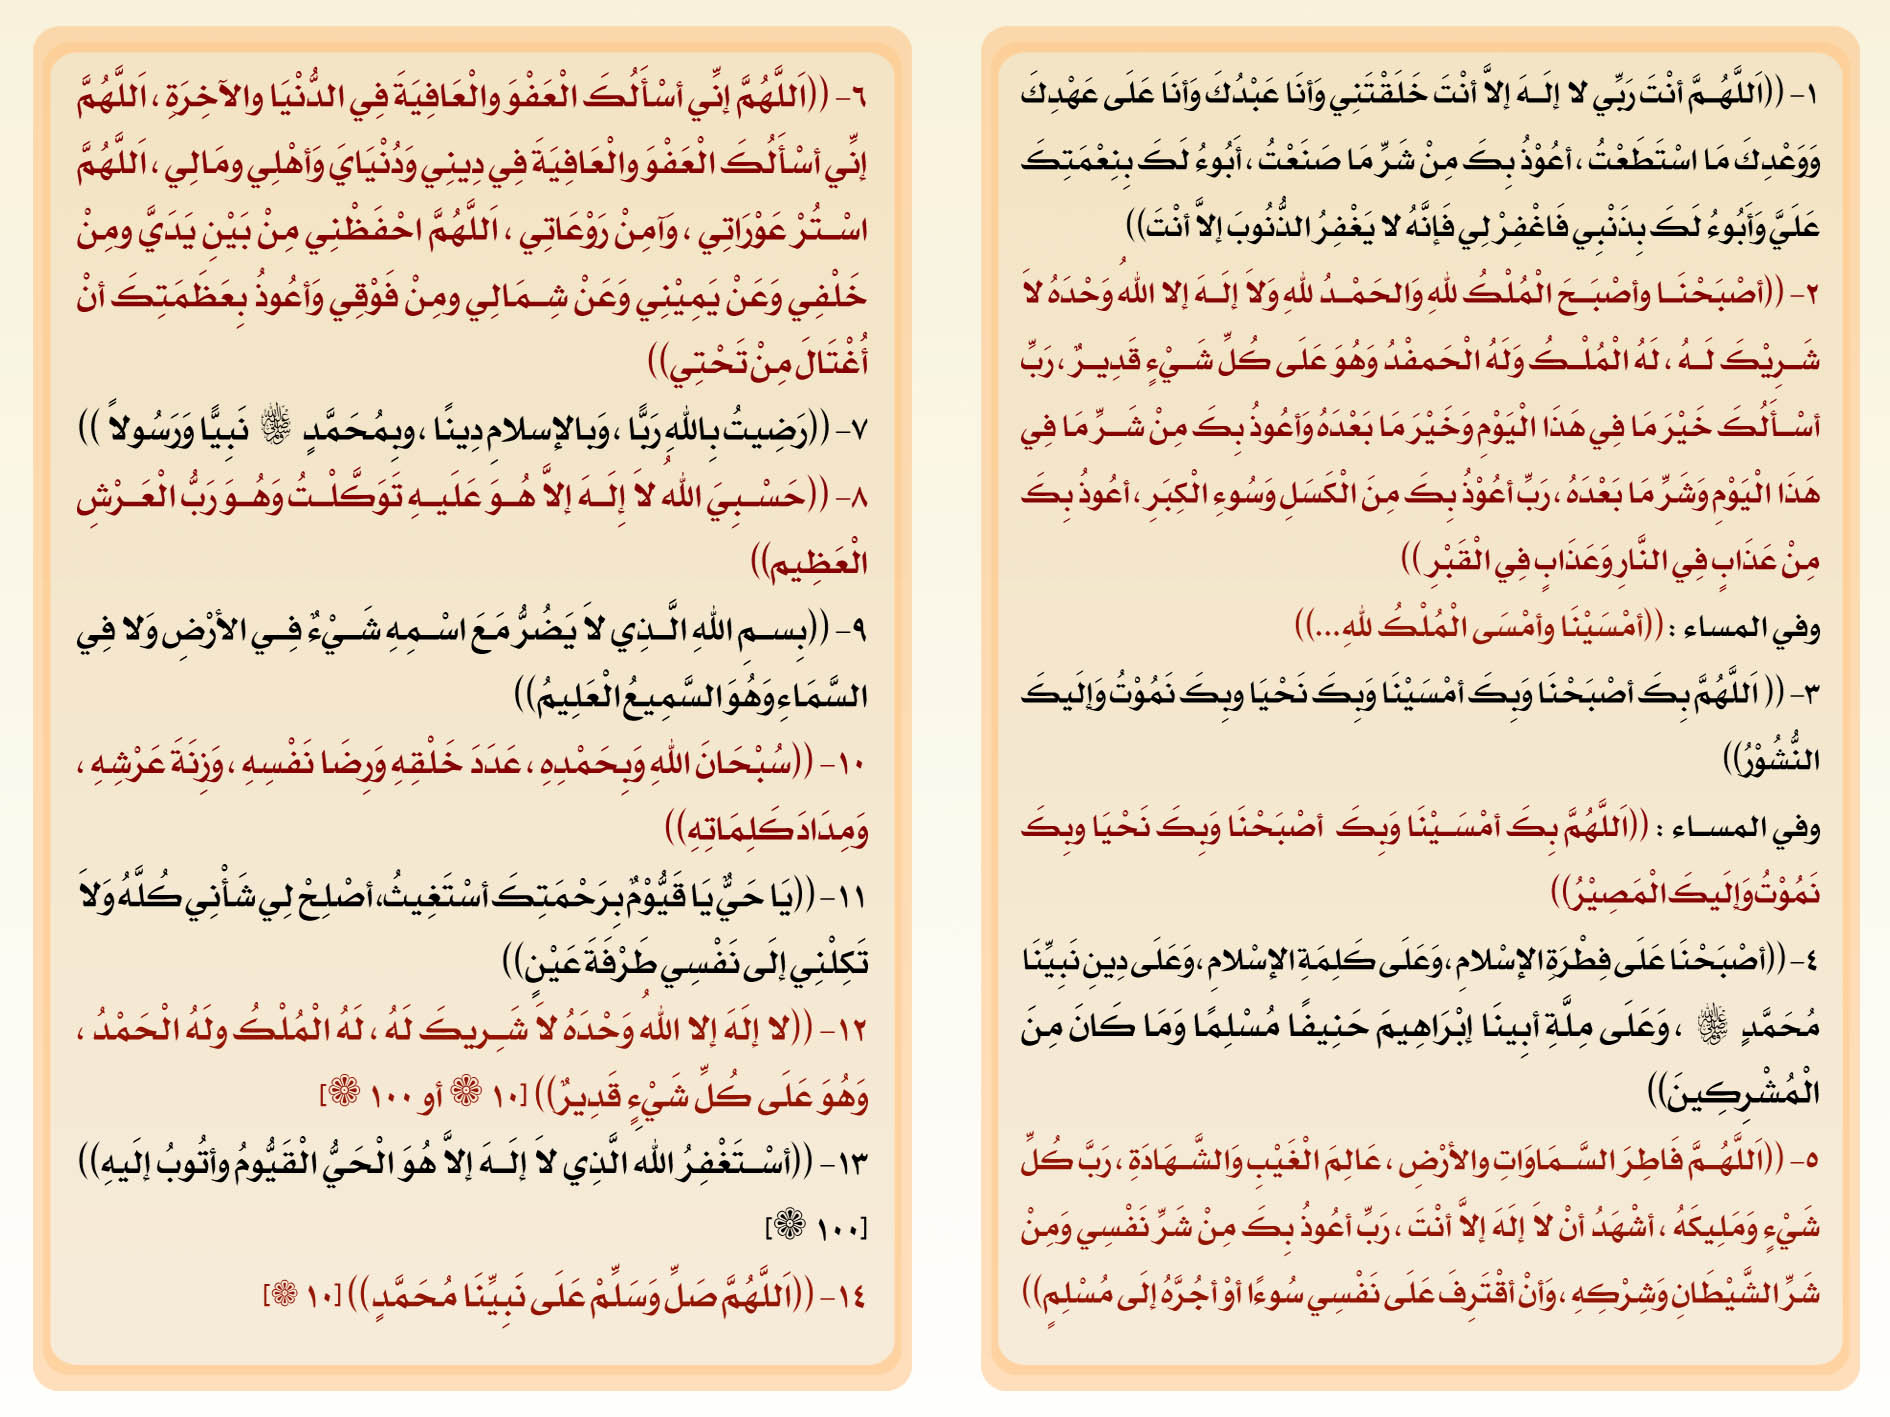 ١- ((اَللَّهُـمَّ أنْتَ رَبِّي لا إلَـهَ إلاَّ أنْتَ خَلَقْتَنِي وَأنَا عَبْدُكَ وَأنَا عَلَى عَهْدِكَ
وَوَعْدِكَ مَا اسْتَطَعْتُ ، أعُوْذُ بِكَ مِنْ شَرِّ مَا صَنَعْتُ ، أبُوءُ لَكَ بِنِعْمَتِكَ
عَلَيَّ وَأَبُوءُ لَكَ بِذَنْبِي فَاغْفِرْ لِي فَإنَّهُ لا يَغْفِرُ الذُّنُوبَ إلاَّ أنْتَ))
٢- ((أصْبَحْنَـا وأصْبَـحَ الْمُلْكُ للهِ وَالحَمْـدُ للهِ وَلاَ إلَـهَ إلا اللهُ وَحْدَهُ لاَ
شَـرِيْكَ لَـهُ ، لَهُ الْمُلْـكُ وَلَهُ الْحَمفْدُ وَهُوَ عَلَى كُلِّ شَـيْءٍ قَدِيـرٌ ، رَبِّ
أسْـأَلُكَ خَيْرَ مَا فِي هَذَا الْيَوْمِ وَخَيْرَ مَا بَعْدَهُ وَأعُوذُ بِكَ مِنْ شَـرِّ مَا فِي
هَذَا الْيَوْمِ وَشَرِّ مَا بَعْدَهُ ، رَبِّ أعُوْذُ بِكَ مِنَ الْكَسَلِ وَسُوءِ الْكِبَرِ ، أعُوذُ بِكَ
مِنْ عَذَابٍ فِي النَّارِ وَعَذَابٍ فِي الْقَبْرِ ))
وفي المساء : ((أمْسَيْنَا وأمْسَى الْمُلْكُ للهِ...))
٣- (( اَللَّهُمَّ بِكَ أصْبَحْنَا وَبِكَ أمْسَيْنَا وَبِكَ نَحْيَا وبِكَ نَمُوْتُ وَإلَيكَ
النُّشُوْرُ))
وفي المسـاء : ((اَللَّهُمَّ بِكَ أمْسَـيْنَا وَبِكَ أصْبَحْنَا وَبِكَ نَحْيَا وبِكَ
نَمُوْتُ وَإلَيكَ الْمَصِيْرُ))
٤- ((أصْبَحْنَا عَلَى فِطْرَةِ الإسْلامِ، وَعَلَى كَلِمَةِ الإسْلامِ، وَعَلَى دِينِ نَبِيِّنَا
مُحَمَّدٍ ﷺ ، وَعَلَى مِلَّةِ أبِينَا إبْرَاهِيمَ حَنِيفًا مُسْلِمًا وَمَا كَانَ مِنَ
الْمُشْرِكِينَ))
٥- ((اَللَّهُـمَّ فَاطِرَ السَّـمَاوَاتِ والأرْضِ ، عَالِمَ الْغَيْبِ وَالشَّـهَادَةِ ، رَبَّ كُلِّ
شَيْءٍ وَمَلِيكَهُ ، أشْهَدُ أنْ لاَ إلَهَ إلاَّ أنْتَ ، رَبِّ أعُوذُ بِكَ مِنْ شَرِّ نَفْسِي وَمِنْ
شَرِّ الشَّيْطَانِ وَشِرْكِهِ ، وَأنْ أقْتَرِفَ عَلَى نَفْسِي سُوءًا أوْ أجُرَّهُ إلَى مُسْلِمٍ))
٦- ((اَللَّهُمَّ إنِّي أسْأَلُكَ الْعَفْوَ والْعَافِيَةَ فِي الدُّنْيَا والآخِرَةِ ، اَللَّهُمَّ
إنِّي أسْأَلُكَ الْعَفْوَ والْعَافِيَةَ فِي دِينِي وَدُنْيَايَ وَأهْلِي ومَالِي ، اَللَّهُمَّ
اسْـتُرْ عَوْرَاتِي ، وَآمِنْ رَوْعَاتِي ، اَللَّهُمَّ احْفَظْنِي مِنْ بَيْنِ يَدَيَّ ومِنْ
خَلْفِي وَعَنْ يَمِيْنِي وَعَنْ شِـمَالِي ومِنْ فَوْقِي وَأعُوذُ بِعَظَمَتِكَ أنْ
أُغْتَالَ مِنْ تَحْتِي))
٧- ((رَضِيتُ بِاللهِ رَبًّا ، وَبِالإسلامِ دِينًا ، وبِمُحَمَّدٍ ﷺ نَبِيًّا وَرَسُولاً ))
٨- ((حَسْـبِيَ اللهُ لاَ إِلَـهَ إلاَّ هُـوَ عَلَيـهِ تَوَكَّلْـتُ وَهُـوَ رَبُّ الْعَـرْشِ
الْعَظِيم))
٩- ((بِسـمِ اللهِ الَّـذِي لاَ يَضُرُّ مَعَ اسْـمِهِ شَـيْءٌ فِـي الأرْضِ وَلا فِي
السَّمَاءِ وَهُوَ السَّمِيعُ الْعَلِيمُ))
١٠- ((سُبْحَانَ اللهِ وَبِحَمْدِهِ ، عَدَدَ خَلْقِهِ وَرِضَا نَفْسِهِ ، وَزِنَةَ عَرْشِهِ ،
وَمِدَادَ كَلِمَاتِهِ))
١١- ((يَا حَيُّ يَا قَيُّوْمٌ بِرَحْمَتِكَ أسْتَغِيثُ، أصْلِحْ لِي شَأْنِي كُلَّهُ وَلاَ
تَكِلْنِي إلَى نَفْسِي طَرْفَةَ عَيْنٍ))
١٢- ((لا إلَهَ إلا اللهُ وَحْدَهُ لاَ شَـرِيكَ لَهُ ، لَهُ الْمُلْكُ ولَهُ الْحَمْدُ ،
وَهُوَ عَلَى كُلِّ شَيْءٍ قَدِيرٌ)) [١٠ ❁ أو ١٠٠ ❁]
١٣- ((أسْـتَغْفِرُ الله الَّذِي لاَ إلَـهَ إلاَّ هُوَ الْحَيُّ الْقَيُّومُ وأتُوبُ إلَيهِ))
[١٠٠ ❁]
١٤- ((اَللَّهُمَّ صَلِّ وَسَلِّمْ عَلَى نَبِيِّنَا مُحَمَّدٍ)) [١٠ ❁]